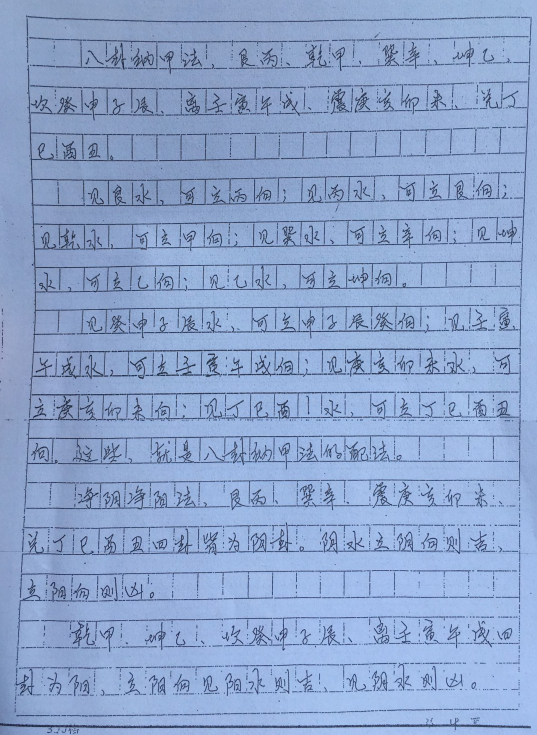 八卦纳甲法，艮丙、乾甲、巽辛、坤乙、
坎癸申子辰、离壬寅午戌、震庚亥卯未、兑丁
巳酉丑。
见艮水，可立丙向；见丙水，可立艮向；
见乾水，可立甲向；见巽水，可立辛向；见坤
水，可立乙向；见乙水，可立坤向。
见癸申子辰水，可立申子辰癸向；见壬寅
午戌水，可立壬寅午戌向；见庚亥卯未水，可
立庚亥卯未向；见丁巳酉丨水，可立丁巳酉丑
向。这些，就是八卦纳甲法的配法。
净阴净阳法，艮丙、巽辛、震庚亥卯未、
兑丁巳酉丑四卦皆为阴卦。阴水立阴向则吉，
立阳向则凶。
乾甲、坤乙、坎癸申子辰、离壬寅午戌四
卦为阳，立阳向见阳水则吉，见阴水则凶。